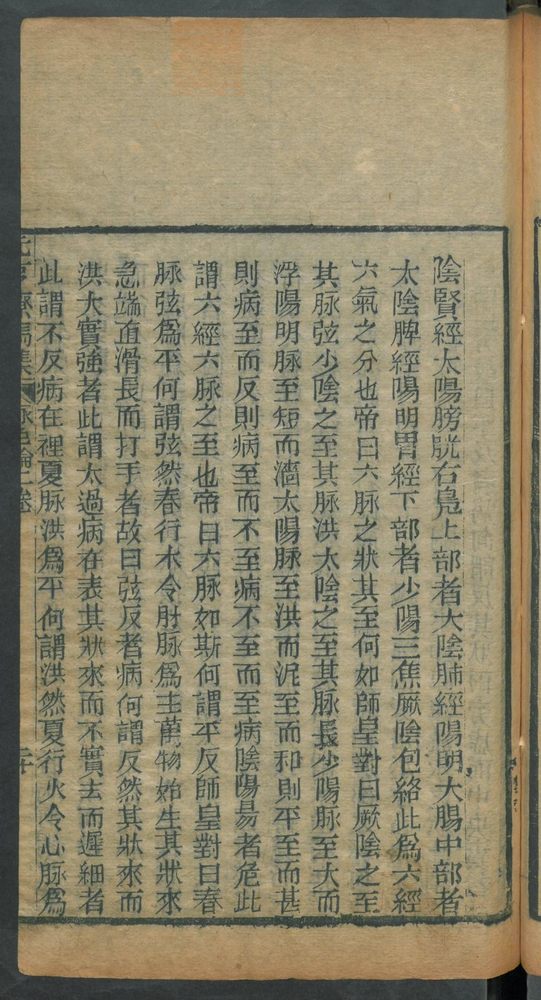 陰腎經太陽膀胱右鳧上部者太陰肺經陽明大腸中部者
太陰脾經陽明胃經下部者少陽三焦厥陰包絡此爲六經
六氣之分也帝曰六脉之狀其至何如師皇對曰厥陰之至
其脉弦少陰之至其脉洪太陰之至其脉長少陽脉至大而
浮陽明脉至短而濇太陽脉至洪而泥至而和則平至而甚
則病至而反則病至而不至病不至而至病陰陽昜者危此
謂六經六脉之至也帝曰六脉如斯何謂平反師皇對曰春
脉弦爲平何謂弦然春行木令肝脉爲主萬物始生其狀來
急端直滑長而打手者故曰弦反者病何謂反然其狀來而
洪大實強者此謂太過病在表其狀來而不實去而遲細者
此謂不反病在裡夏脉洪爲平何謂洪然夏行火令心脉爲
元亨療馬集 脉色論一卷 二十